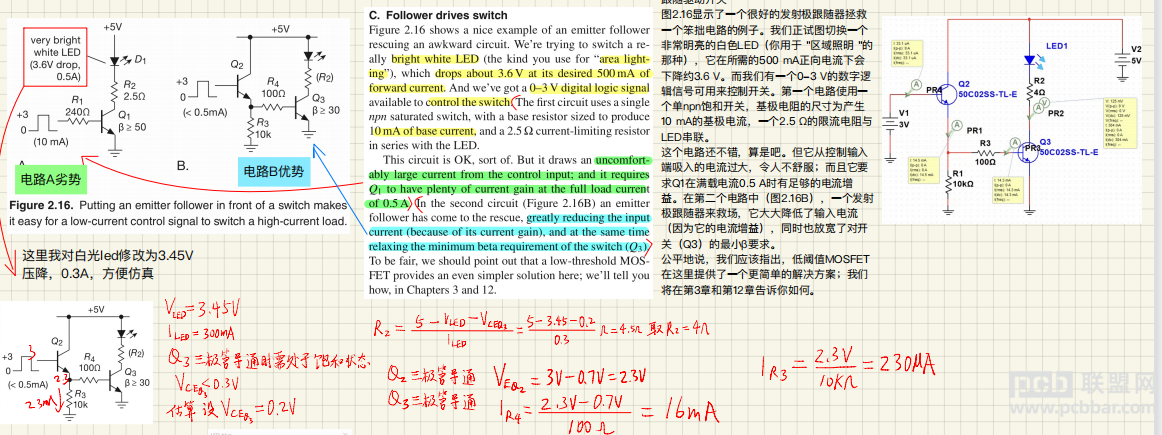 +5V
very bright
white LED
(3.6V drop,
0.5A)
D1
R2
2.5Ω
R1
240Ω
+3
0
(10 mA)
Q1
β ≥ 50
A.
电路A劣势
+5V
Q2
+3
0
(< 0.5mA)
R4
100Ω
(R2)
Q3
β ≥ 30
R3
10k
B.
电路B优势
Figure 2.16. Putting an emitter follower in front of a switch makes
it easy for a low-current control signal to switch a high-current load.
这里我对白光led修改为3.45V
压降，0.3A，方便仿真
C. Follower drives switch
Figure 2.16 shows a nice example of an emitter follower
rescuing an awkward circuit. We're trying to switch a re-
ally bright white LED (the kind you use for "area light-
ing"), which drops about 3.6 V at its desired 500 mA of
forward current. And we've got a 0–3 V digital logic signal
available to control the switch. The first circuit uses a single
npn saturated switch, with a base resistor sized to produce
10 mA of base current, and a 2.5 Ω current-limiting resistor
in series with the LED.
This circuit is OK, sort of. But it draws an uncomfort-
ably large current from the control input; and it requires
Q1 to have plenty of current gain at the full load current
of 0.5 A. In the second circuit (Figure 2.16B) an emitter
follower has come to the rescue, greatly reducing the input
current (because of its current gain), and at the same time
relaxing the minimum beta requirement of the switch (Q3).
To be fair, we should point out that a low-threshold MOS-
FET provides an even simpler solution here; we'll tell you
how, in Chapters 3 and 12.
图2.16显示了一个很好的发射极跟随器拯救
一个笨拙电路的例子。我们正试图切换一个
非常明亮的白色LED（你用于 "区域照明 "的
那种），它在所需的500 mA正向电流下会
下降约3.6 V。而我们有一个0–3 V的数字逻
辑信号可用来控制开关。第一个电路使用一
个单npn饱和开关，基极电阻的尺寸为产生
10 mA的基极电流，一个2.5 Ω的限流电阻与
LED串联。
这个电路还不错，算是吧。但它从控制输入
端吸入的电流过大，令人不舒服；而且它要
求Q1在满载电流0.5 A时有足够的电流增
益。在第二个电路中（图2.16B），一个发射
极跟随器来救场，它大大降低了输入电流
（因为它的电流增益），同时也放宽了对开
关（Q3）的最小β要求。
公平地说，我们应该指出，低阈值MOSFET
在这里提供了一个更简单的解决方案；我们
将在第3章和第12章告诉你如何。
LED1
V2
5V
Q2
50C02SS-TL-E
R2
4Ω
PR4
V1
3V
PR2
PR1
R3
100Ω
Q3
50C02SS-TL-E
R1
10kΩ
+5V
Q2
+3
3
0
(< 0.5mA)
2.3
R4
100Ω
(R2)
Q3
β ≥ 30
R3
10k
VLED=3.45V
ILED=300mA
Q3三极管导通时需处于饱和状态
VCEQ3<0.3V
估算 设VCEQ3=0.2V
R2 = 5-VLED-VCEQ3 / ILED = 5-3.45-0.2 / 0.3 Ω=4.5Ω 取R2=4Ω
Q2三极管导通 VEQ2=3V-0.7V=2.3V
Q3三极管导通 IR4 = 2.3V-0.7V / 100Ω = 16mA
IR3 = 2.3V / 10KΩ = 230μA
pcb联盟网
www.pcbbar.com